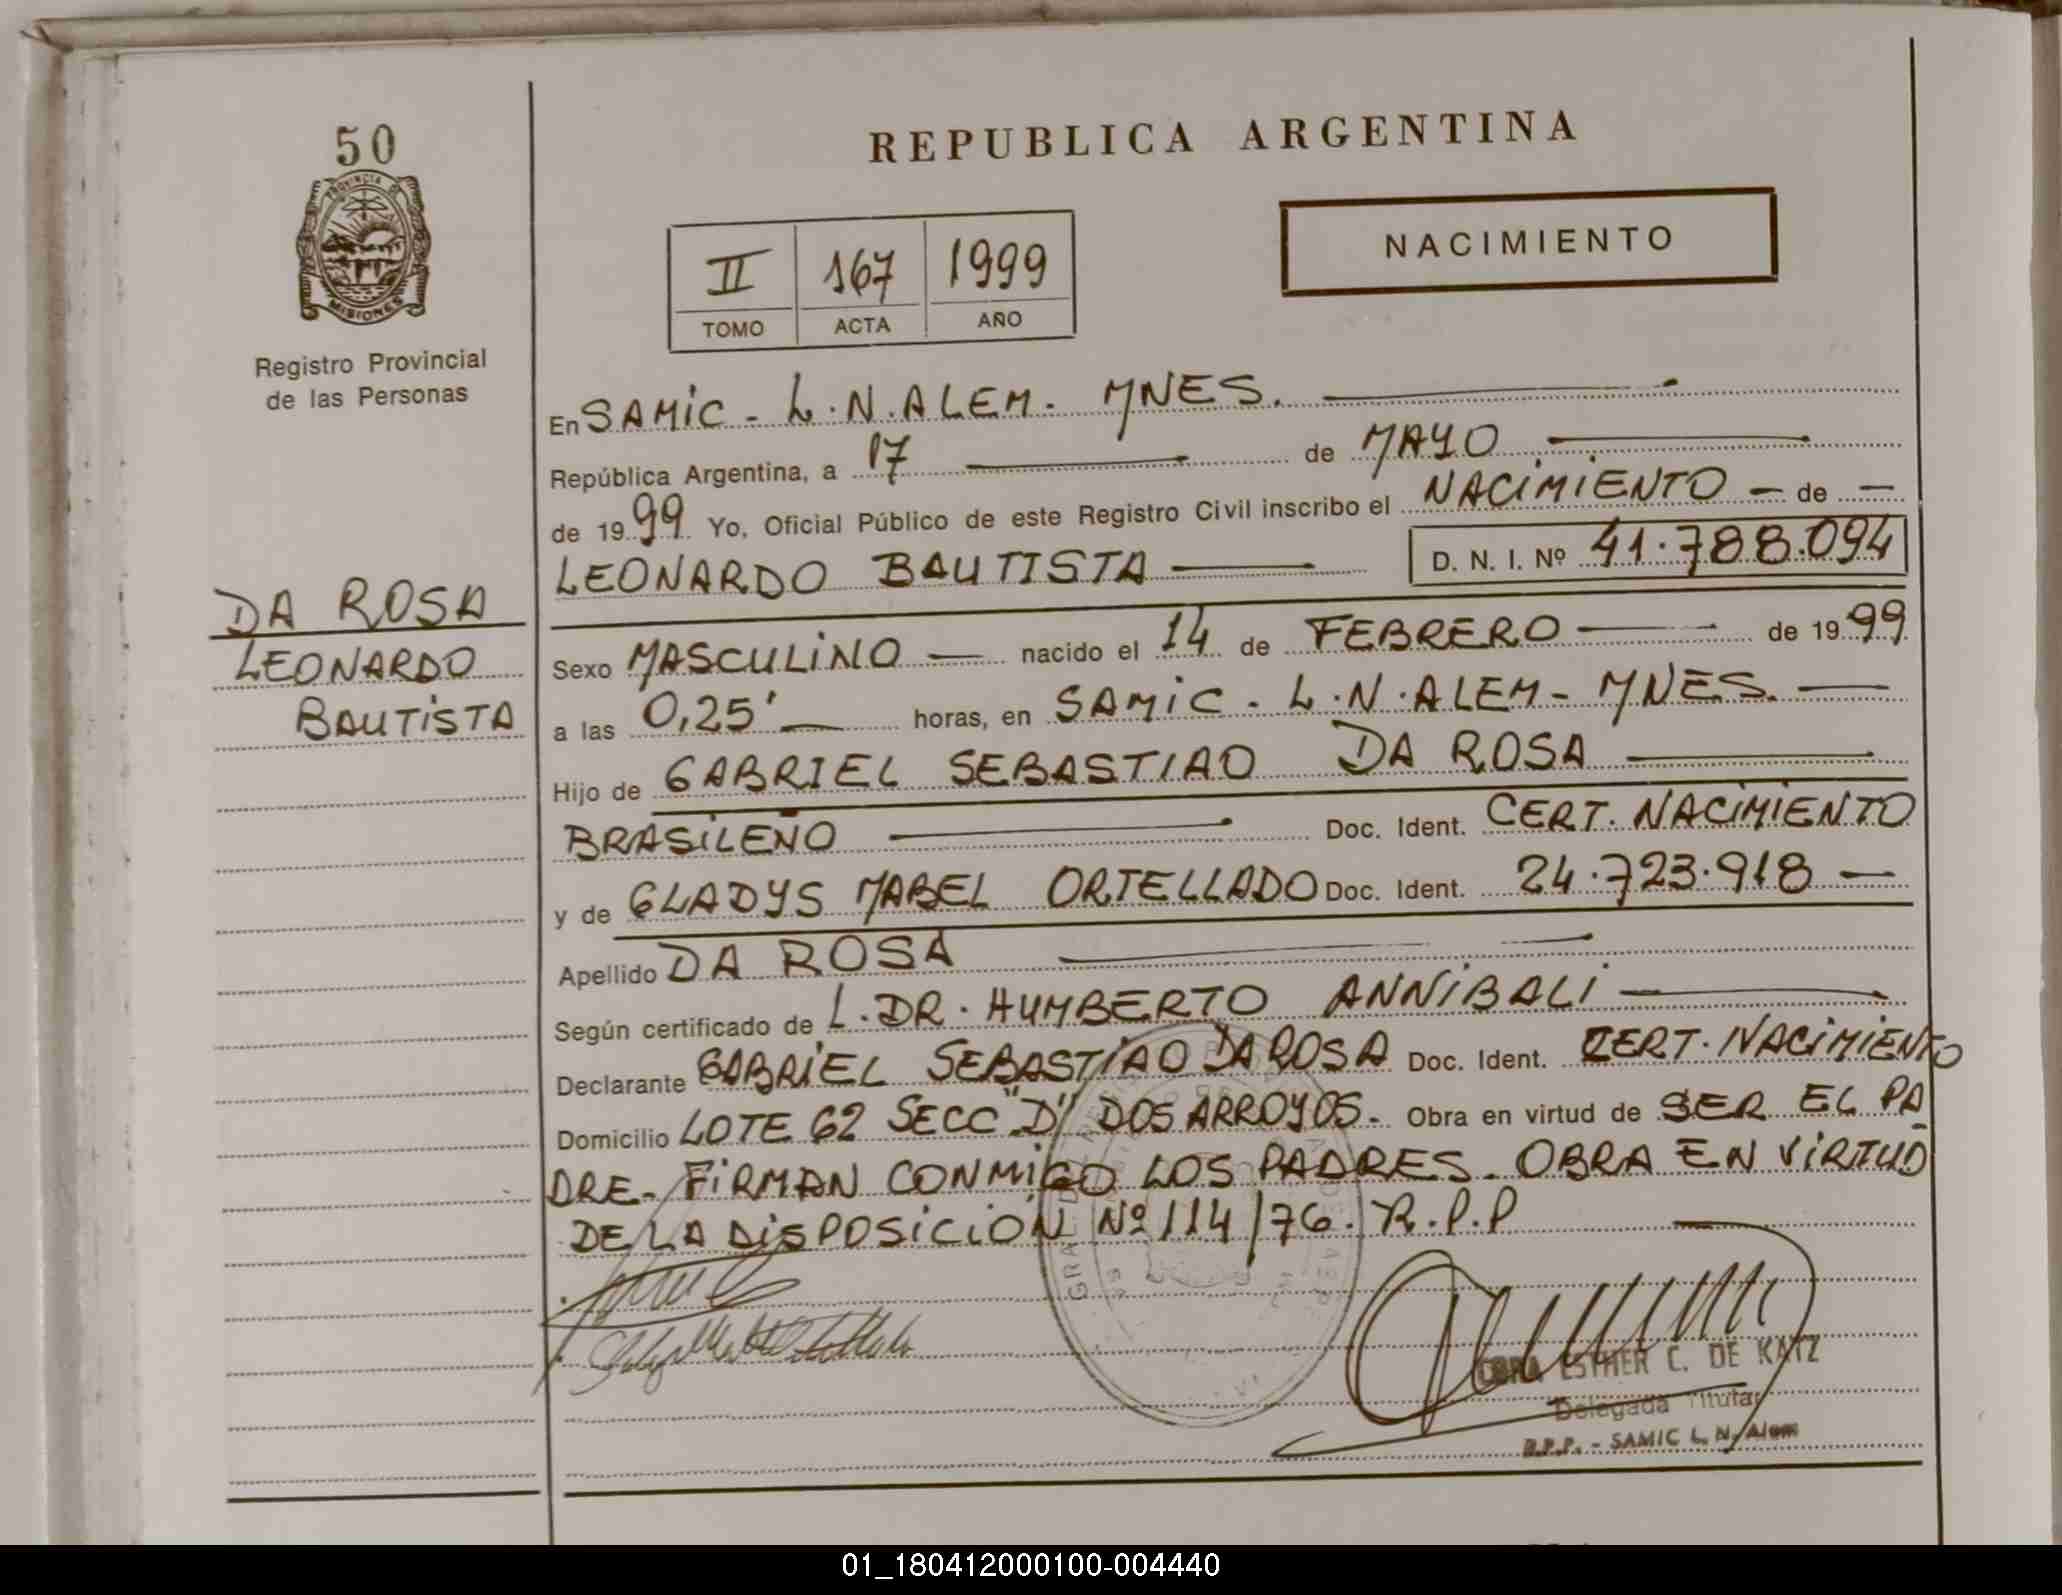 50
PROVINCIA DE
MISIONES
Registro Provincial
de las Personas
DA ROSA
LEONARDO
BAUTISTA
REPUBLICA ARGENTINA
II 167 1999
TOMO ACTA AÑO
NACIMIENTO
En SAMIC - L.N.ALEM. MNES.
República Argentina, a 17 de MAYO
de 1999 Yo, Oficial Público de este Registro Civil inscribo el NACIMIENTO - de -
LEONARDO BAUTISTA D. N. I. Nº 41.788.094
Sexo MASCULINO nacido el 14 de FEBRERO de 1999
a las 0,25' horas, en SAMIC - L.N.ALEM - MNES.
Hijo de GABRIEL SEBASTIAO DA ROSA
BRASILEÑO Doc. Ident. CERT. NACIMIENTO
y de GLADYS MABEL ORTELLADO Doc. Ident. 24.723.918
Apellido DA ROSA
Según certificado de L. DR. HUMBERTO ANNIBALI
Declarante GABRIEL SEBASTIAO DA ROSA Doc. Ident. CERT. NACIMIENTO
Domicilio LOTE 62 SECC "D" DOS ARROYOS. Obra en virtud de SER EL PA
DRE. FIRMAN CONMIGO LOS PADRES. OBRA EN VIRTUD
DE LA DISPOSICIÓN Nº 114/76. R.P.P
ESTHER C. DE KATZ
Delegada Titular
R.P.P. - SAMIC L. N. Alem
01_180412000100-004440